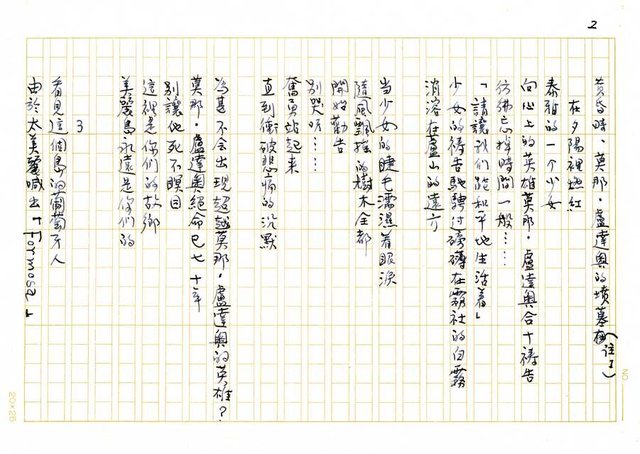 2
黃昏時、莫那・盧達奧的墳墓(注1)
在夕陽裡燃紅
泰雅的一个少女
向心上的英雄莫那・盧達奧合十禱告
彷彿忘掉時間一般……
「請讓我們能和平地生活着」
少女的禱告馳騁过磅礡在霧社的白霧
消溶在蘆山的遠方
當少女的睫毛濡濕着眼淚
隨風飄搖的樹木全都
開始勸告
別哭呀……
奮勇站起來
直到衝破悲痛的沉默
為甚不会出現超越莫那・盧達奧的英雄?
莫那・盧達奧絕命已七十年
別讓他死不瞑目
這裡是你们的故鄉
美麗島永遠是你們的
3
看見這個島的葡萄牙人
由於太美麗喊出「Formosa」
20×20
NO